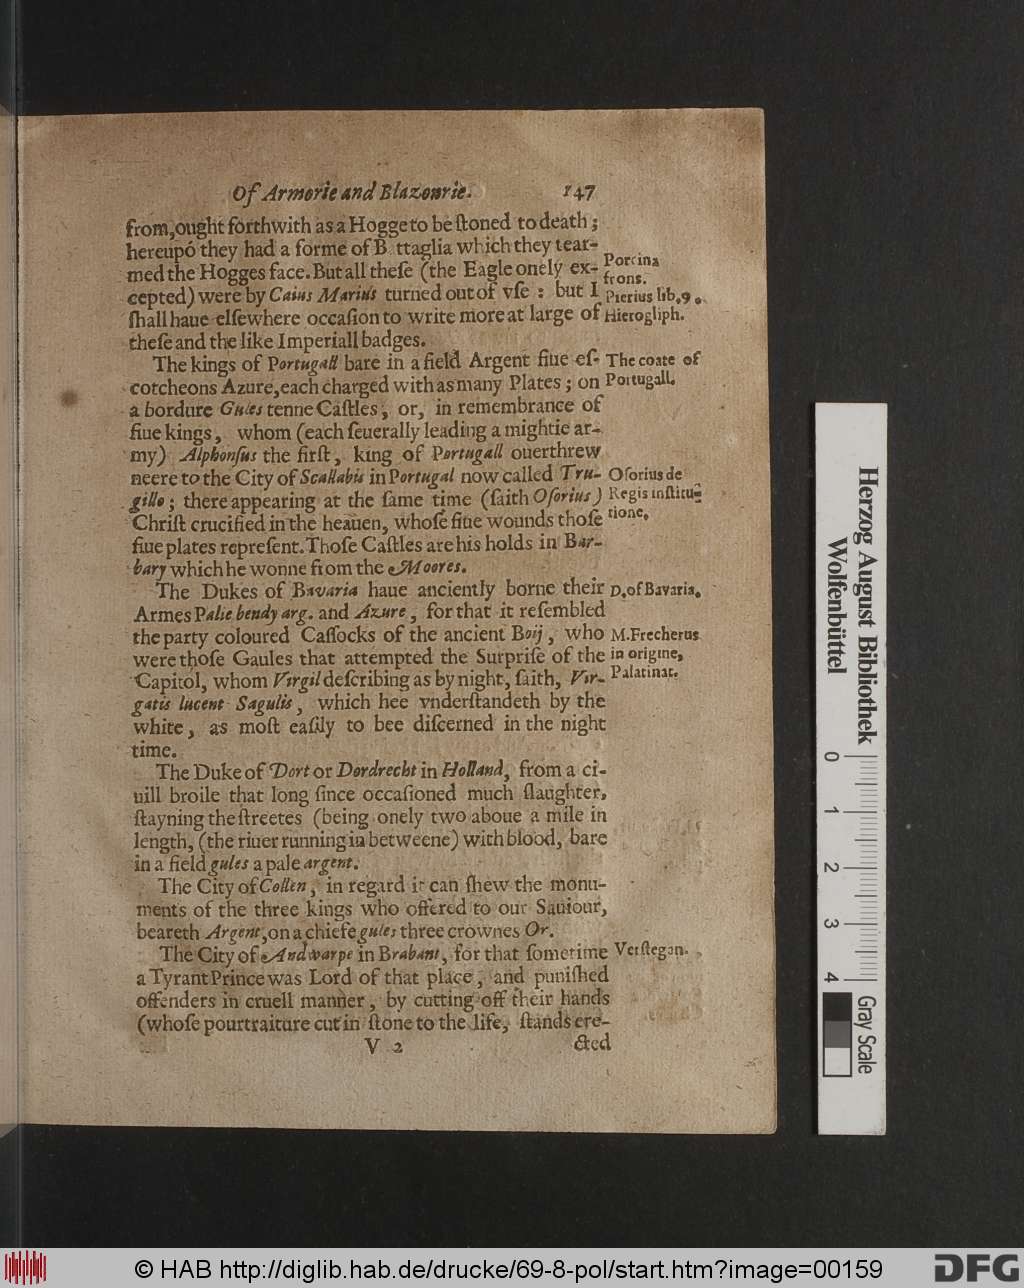 Of Armorie and Blazonrie. 147
from,ought forthwith as a Hogge to be ſtoned to death;
hereupõ they had a forme of B ttaglia which they tear-
med the Hogges face. But all theſe (the Eagle onely ex-
cepted) were by Caius Marius turned out of vſe : but I
ſhall haue elſewhere occaſion to write more at large of
theſe and the like Imperiall badges.
Porcina
frons.
Pierius lib.9.
Hieogliph.
The kings of Portugall bare in a field Argent fiue eſ-
cotcheons Azure,each charged with as many Plates ; on
a bordure Gules tenne Caſtles, or, in remembrance of
fiue kings, whom (each ſeuerally leading a mightie ar-
my) Alphonſus the firſt, king of Portugall ouerthrew
neere to the City of Scallabis in Portugal now called Tru-
gillo ; there appearing at the ſame time (ſaith Oſorius)
Chriſt crucified in the heauen, whoſe fiue wounds thoſe
fiue plates repreſent. Thoſe Caſtles are his holds in Bar-
bary which he wonne from the Moores.
The coate of
Portugall.
Oſorius de
Regis inſtitu-
tione.
The Dukes of Bavaria haue anciently borne their
Armes Palie bendy arg. and Azure, for that it reſembled
the party coloured Caſſocks of the ancient Boij, who
were thoſe Gaules that attempted the Surpriſe of the
Capitol, whom Virgil deſcribing as by night, ſaith, Vir-
gatis lucent Sagulis, which hee vnderſtandeth by the
white, as moſt eaſily to bee diſcerned in the night
time.
D.of Bavaria.
M.Frecherus
in origine,
Palatinat.
The Duke of Dort or Dordrecht in Holland, from a ci-
uill broile that long ſince occaſioned much ſlaughter,
ſtayning the ſtreetes (being onely two aboue a mile in
length, (the riuer running in betweene) with blood, bare
in a field gules a pale argent.
The City of Collen, in regard it can ſhew the monu-
ments of the three kings who offered to our Sauiour,
beareth Argent,on a chiefe gules three crownes Or.
The City of Andwarpe in Brabant, for that ſometime
a Tyrant Prince was Lord of that place, and puniſhed
offenders in cruell manner, by cutting off their hands
(whoſe pourtraiture cut in ſtone to the life, ſtands ere-
Verſtegan.
V 2 cted
Herzog August Bibliothek
Wolfenbüttel
0 1 2 3 4
Gray Scale
© HAB http://diglib.hab.de/drucke/69-8-pol/start.htm?image=00159
DFG